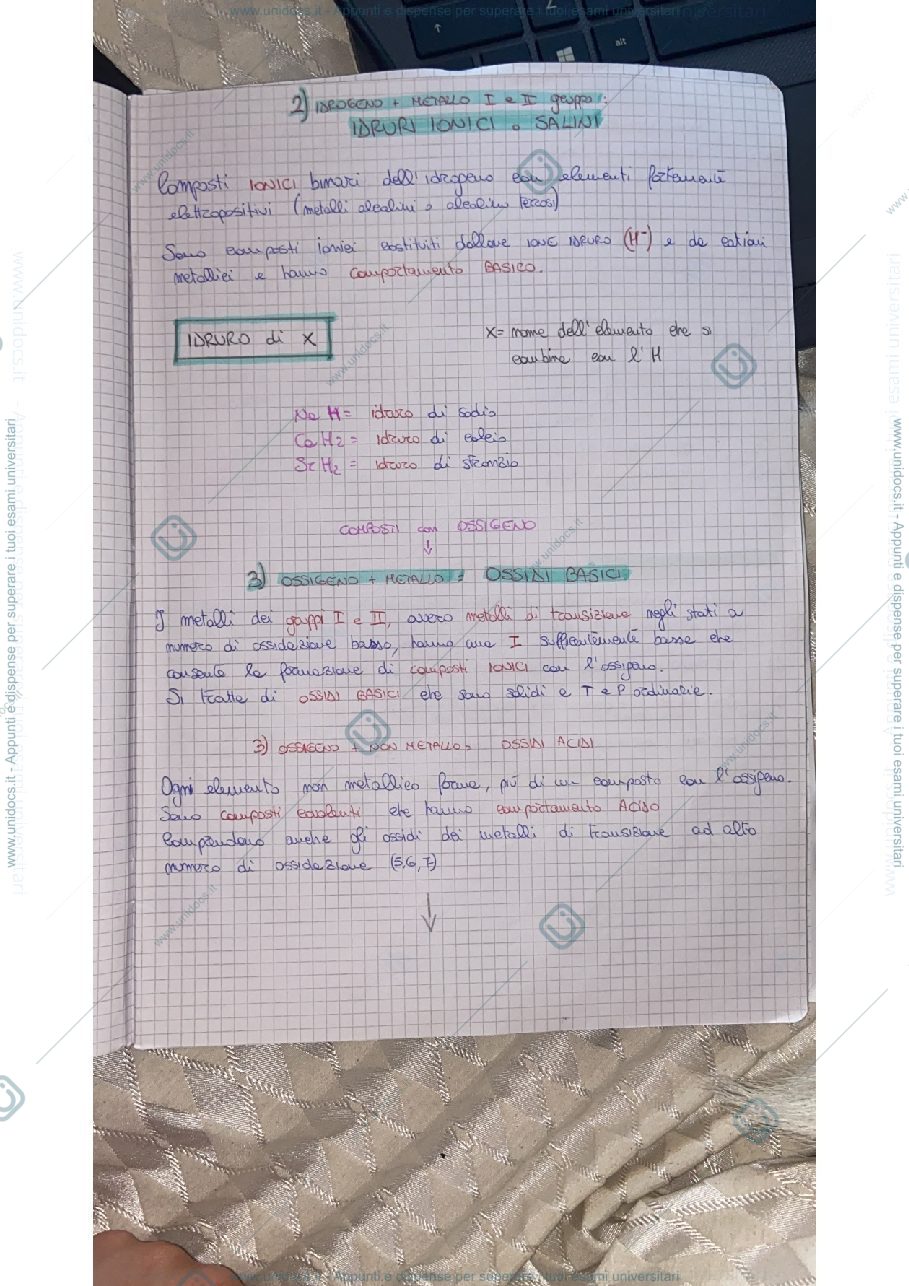 www.unidocs.it - Appunti e dispense per superare i tuoi esami universitari
2) IDROGENO + METALLO I e II gruppo:
IDRURI IONICI o SALINI
Composti IONICI binari dell'idrogeno con elementi fortemente
elettropositivi (metalli alcalini o alcalino terrosi)
Sono composti ionici costituiti dallo ione IDRURO (H⁻) e da cationi
metallici e hanno comportamento BASICO.
IDRURO di X
X = nome dell'elemento che si
combina con l'H
NaH = idruro di sodio
CaH2 = idruro di calcio
SrH2 = idruro di stronzio
COMPOSTI con OSSIGENO
↓
3) OSSIGENO + METALLO: OSSIDI BASICI
I metalli dei gruppi I e II, ovvero metalli di transizione negli stati a
numero di ossidazione basso, hanno una I sufficientemente bassa che
consente la formazione di composti IONICI con l'ossigeno.
Si tratta di OSSIDI BASICI che sono solidi a T e P ordinarie.
3) OSSIGENO + NON METALLO = OSSIDI ACIDI
Ogni elemento non metallico forma, più di un composto con l'ossigeno.
Sono composti covalenti che hanno comportamento ACIDO
Comprendono anche gli ossidi dei metalli di transizione ad alto
numero di ossidazione (5,6,7)
↓
www.unidocs.it - Appunti e dispense per superare i tuoi esami universitari
www.unidocs.it - Appunti e dispense per superare i tuoi esami universitari
www.unidocs.it - Appunti e dispense per superare i tuoi esami universitari